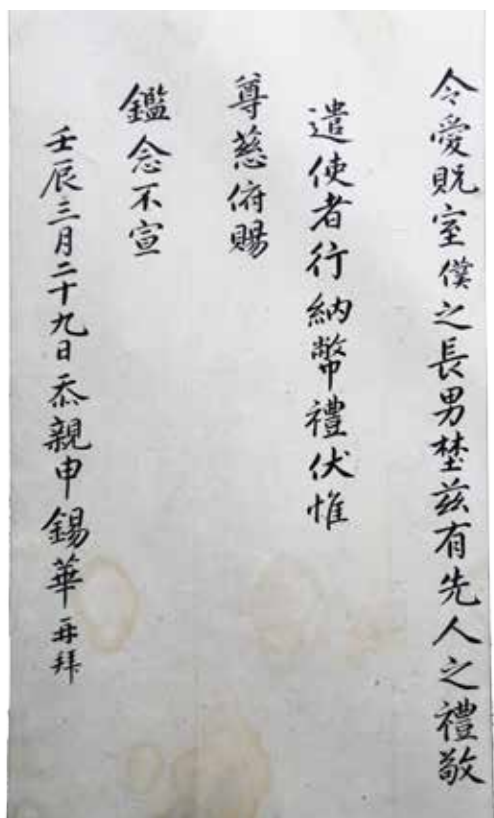 令愛貺室僕之長男埜玆有先人之禮敬
遣使者行納幣禮伏惟
尊慈俯賜
鑑念不宣
壬辰三月二十九日忝親申錫華再拜